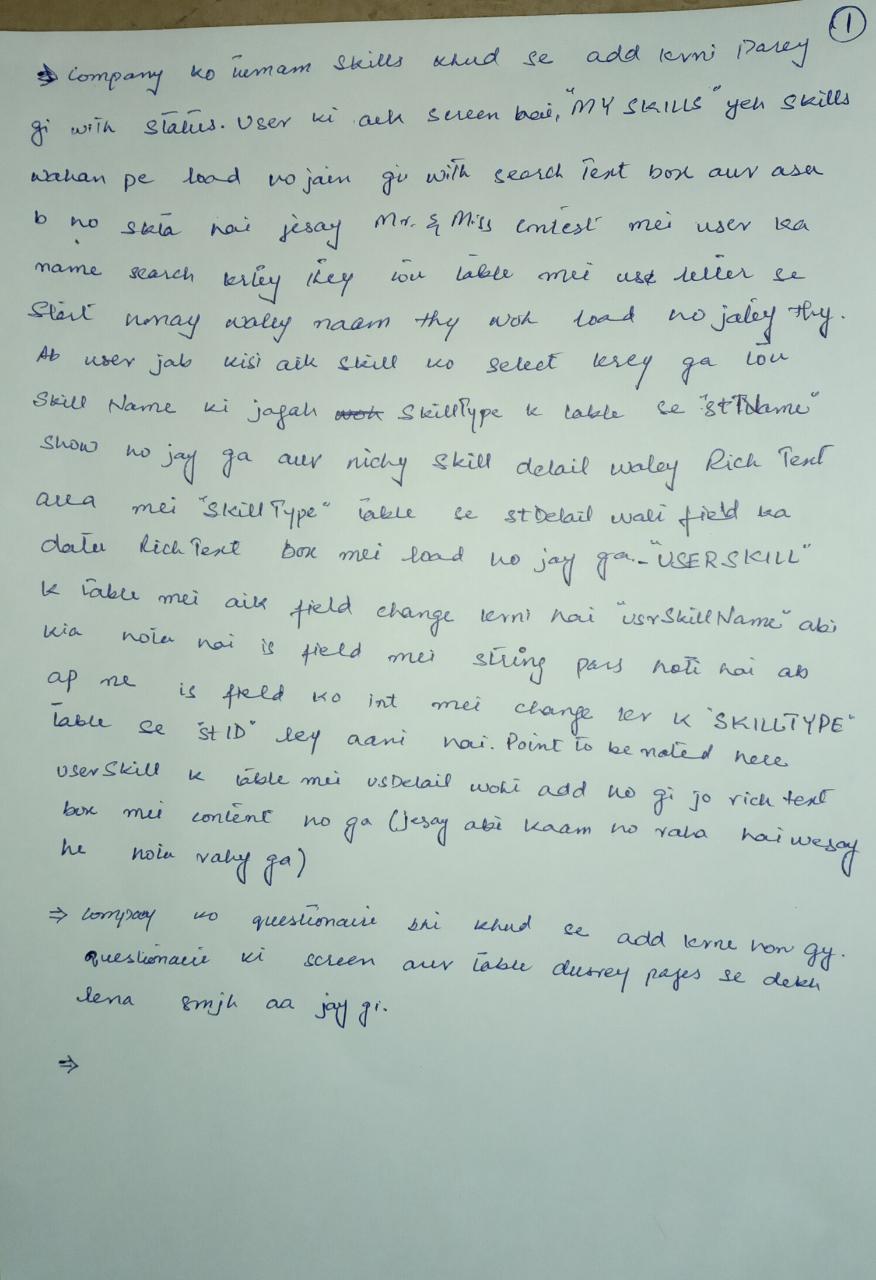 1
⇒ Company ko tumam skills khud se add krni parey
gi with status. User ki aek screen hai, "MY SKILLS" yeh skills
wahan pe load ho jain gi with search Text box aur asa
b ho skta hai jesay Mr. & Miss contest mei user ka
name search krtey they tou table mei us letter se
start honay waley naam thy woh load ho jatey thy.
Ab user jab kisi aik skill ko select krey ga tou
Skill Name ki jagah woh SkillType k table se "stName"
show ho jay ga aur nichy skill detail waley Rich Text
area mei "SkillType" table se stDetail wali field ka
data Rich Text box mei load ho jay ga. "USERSKILL"
k table mei aik field change krni hai "usrSkillName" abi
kia hota hai is field mei string pass hoti hai ab
ap ne is field ko int mei change kr k "SKILLTYPE"
table se "stID" ley aani hai. Point to be noted here
userSkill k table mei usDetail wohi add ho gi jo rich text
box mei content ho ga (jesay abi kaam ho raha hai wesay
he hota rahy ga)
⇒ Company ko questionaire bhi khud se add krne hon gy.
questionaire ki screen aur table dusrey pages se dekh
lena smjh aa jay gi.
⇒